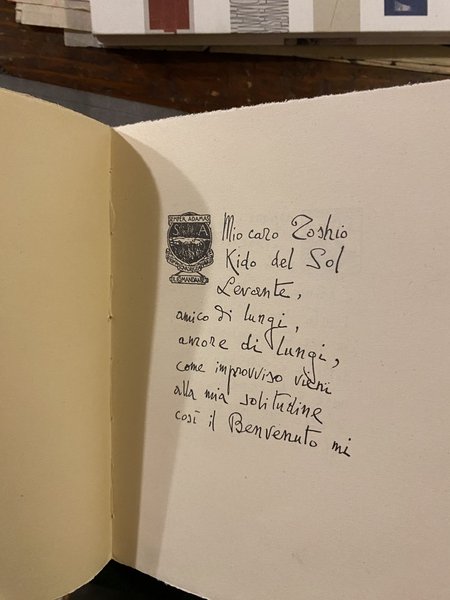 SEMPER ADAMAS
S A
Mio caro Toshio
Kido del Sol
Levante,
amico di lungi,
amore di lungi,
come improvviso vieni
alla mia solitudine
così il Benvenuto mi